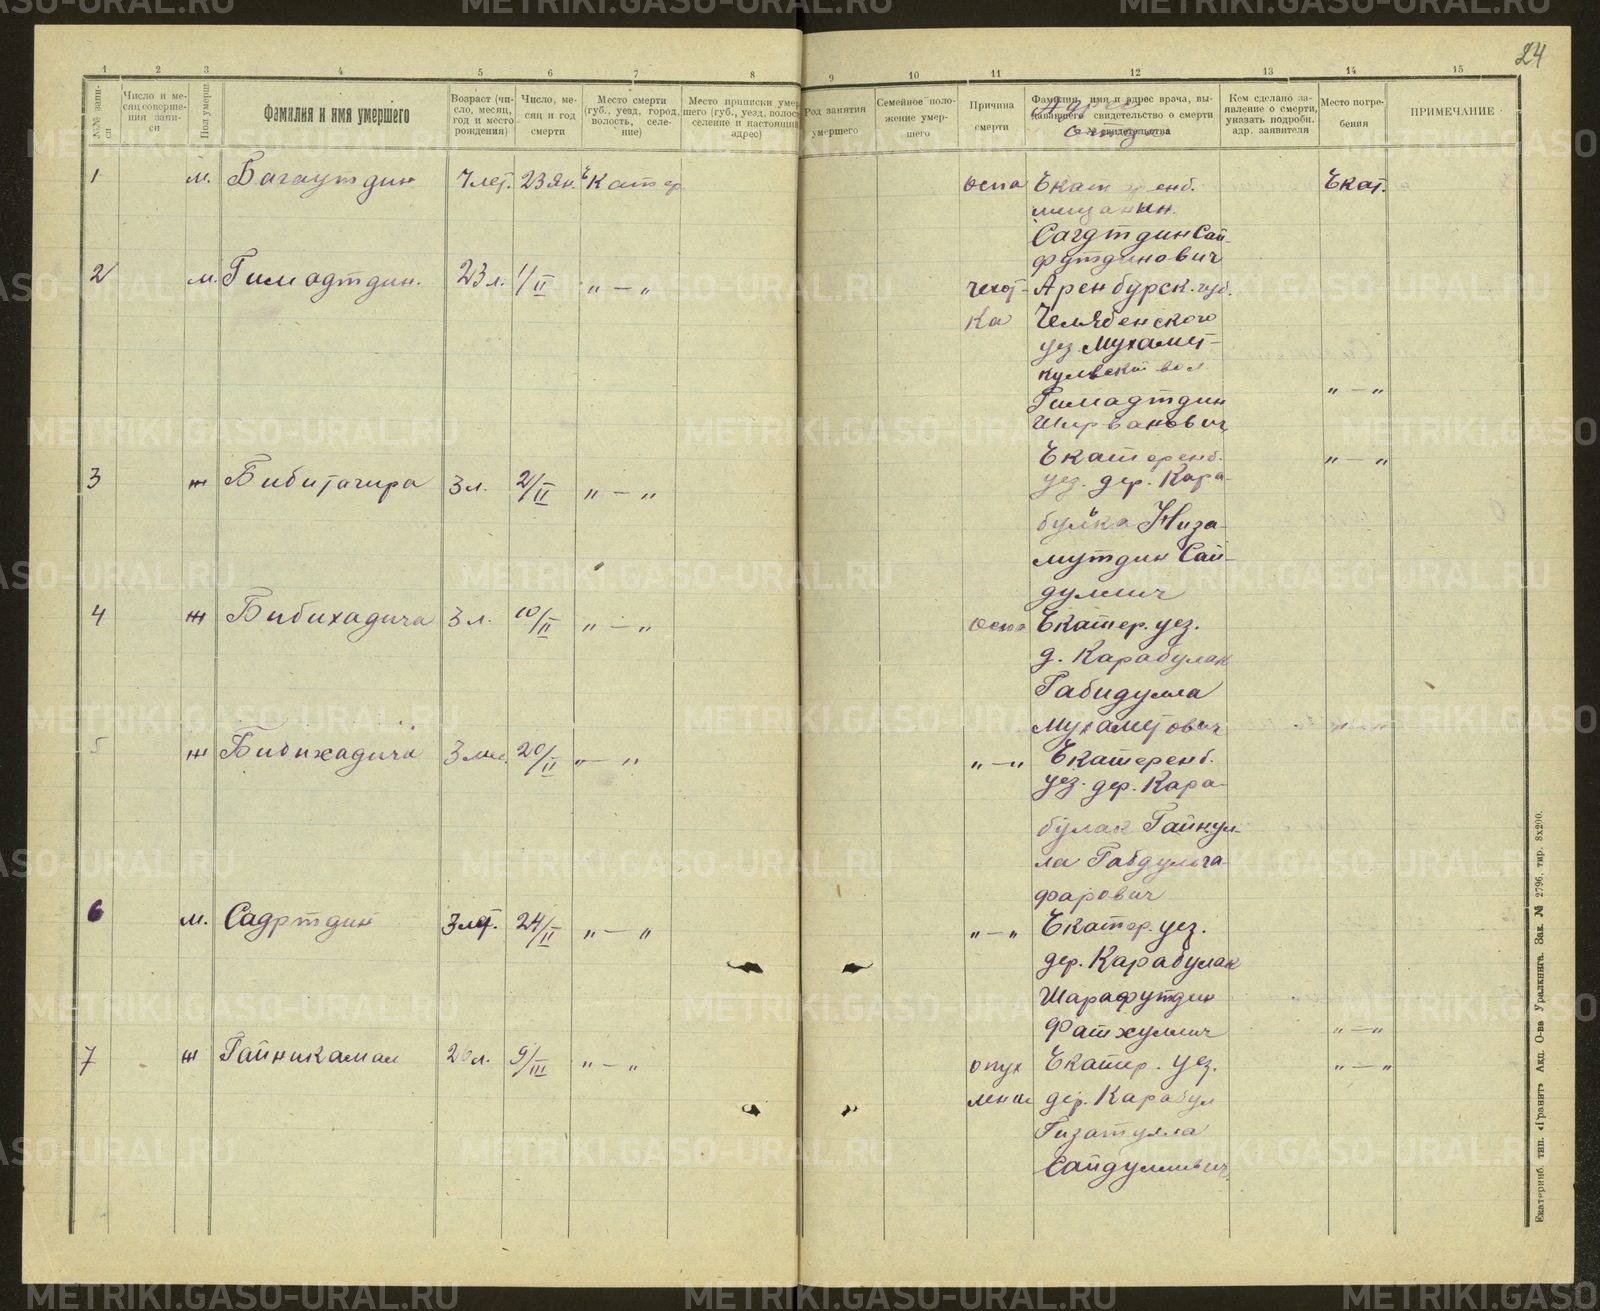 24
1 2 3 4 5 6 7 8 9 10 11 12 13 14 15
№№ запи-
си
Число и ме-
сяц соверше-
ния запи-
си
Пол умерш
Фамилия и имя умершего
Возраст (чи-
сло, месяц,
год и место
рождения)
Число, ме-
сяц и год
смерти
Место смерти
(губ., уезд, город,
волость, селе-
ние)
Место приписки умер
шего (губ., уезд, волос
селение и настоящий
адрес)
Род занятия
умершего
Семейное поло-
жение умер-
шего
Причина
смерти
Фамилия, имя и адрес врача, вы-
дававшего свидетельство о смерти
№ свидетельства
Адрес
отца
Кем сделано за-
явление о смерти,
указать подробн.
адр. заявителя
Место погре-
бения
ПРИМЕЧАНИЕ
1 м. Багаутдин 7 лет. 23 Ян. Екатер оспа Екатеренб. Екат.
мещанин.
Сагдтдин Сай-
футдинович
2 м. Гимадтдин. 23 л. 1/II „ — „ чехот- Аренбурск. губ.
ка Челябенского
уез. Мухамет-
кулвской вол
„ — „
Гимадтдин
Ширванович
3 ж Бибитагира 3 л. 2/II „ — „ Екатеренб. „ — „
уез. дер. Кара-
булка Низа-
мутдин Сай-
дуллич
4 ж Бибихадича 3 л. 10/II „ — „ оспа Екатер. уез.
д. Карабулак
Габидулла
Мухаметович
5 ж Бибихадича 3 20/II „ — „ „ — „ Екатеренб.
уез. дер. Кара-
булак Гайнул-
ла Габдулга
фарович
6 м. Садртдин 3 лет. 24/II „ — „ „ — „ Екатер. уез.
дер. Карабулак
Шарафутдин
Фатхуллич „ — „
7 ж Гайникамал 20 л. 9/III „ — „ опух Екатер. уез. „ — „
ление дер. Карабул
Гизатулла
Сайдуллович
Екатеринб. тип. «Гранит» Акц. О-ва Уралкнига. Зак. № 2796. тир. 8х200.
METRIKI.GASO-URAL.RU